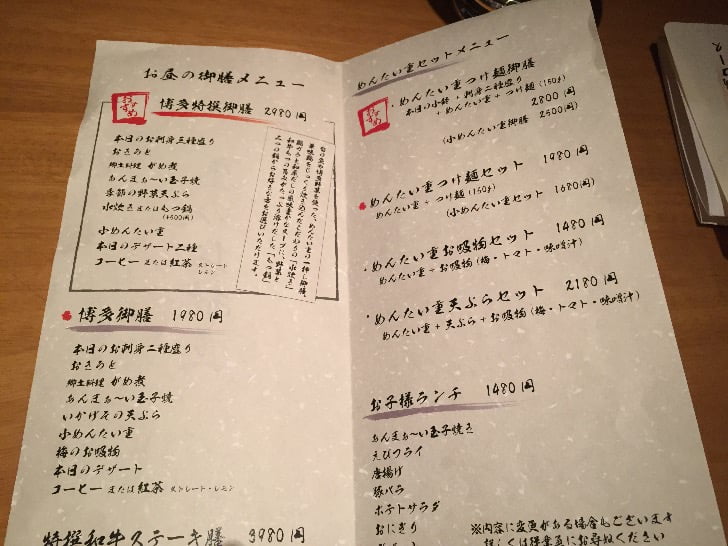 お昼の御膳メニュー
おすすめ
博多特撰御膳 2980円
本日のお刺身三種盛り
おきうと
郷土料理 がめ煮
あんまぁ〜い玉子焼
季節の野菜天ぷら
水焚きまたはもつ鍋
(+500円)
小めんたい重
本日のデザート二種
コーヒー または 紅茶 ストレート レモン
二つの鍋からお好きな方をお選びいただけます。
博多御膳 1980円
本日のお刺身二種盛り
おきうと
郷土料理 がめ煮
あんまぁ〜い玉子焼
いかげその天ぷら
小めんたい重
梅のお吸物
本日のデザート
コーヒー または 紅茶 ストレート・レモン
特撰和牛ステーキ膳 3980円
めんたい重セットメニュー
おすすめ
・めんたい重つけ麺御膳
本日の小鉢+刺身二種盛り
+めんたい重+つけ麺(150g)
2800円
(小めんたい重御膳 2500円)
めんたい重つけ麺セット 1980円
めんたい重+つけ麺(150g)
(小めんたい重セット 1680円)
・めんたい重お吸物セット 1480円
めんたい重+お吸物(梅・トマト・味噌汁)
・めんたい重天ぷらセット 2180円
めんたい重+天ぷら+お吸物(梅・トマト・味噌汁)
お子様ランチ 1480円
あんまぁ〜い玉子焼き
えびフライ
唐揚げ
豚バラ
ポテトサラダ
おにぎり
※内容に変更がある場合もございます
詳しくは係堂員にお尋ねください